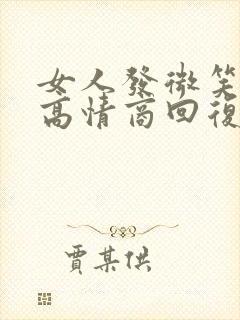 女人發微笑
高情商回復
賈某供